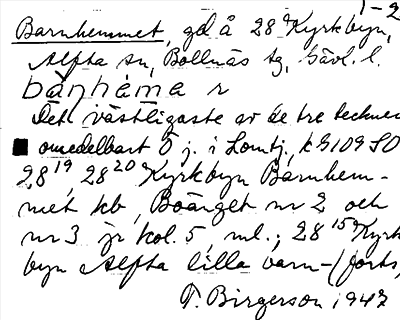 1-2
Barnhemmet, gd å 28² Kyrkbyn,
Alfta sn, Bollnäs tg, Gävl. l.
bànhéma r
Det västligaste av de tre tecknen
omedelbart Ö j. i Lomtj, kg 109 SO
28¹⁹, 28²⁰ Kyrkbyn Barnhem-
met kb, Boänget nr 2 och
nr 3 jr kol. 5, ml.; 28¹⁵ Kyrk
byn Alfta lilla barn-(forts,
T. Birgerson 1947